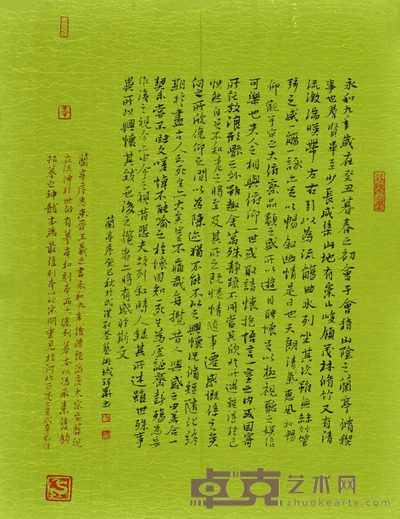 永和九年歲在癸丑暮春之初會于會稽山陰之蘭亭脩稧
事也羣賢畢至少長咸集此地有崇山峻領茂林脩竹又有清
流激湍暎帶左右引以為流觴曲水列坐其次雖無絲竹管
弦之盛一觴一詠亦足以暢敘幽情是日也天朗氣清惠風和暢
仰觀宇宙之大俯察品類之盛所以遊目騁懷足以極視聽之娛信
可樂也夫人之相與俯仰一世或取諸懷抱悟言一室之內或因寄
所託放浪形骸之外雖趣舍萬殊靜躁不同當其欣於所遇暫得於己
快然自足不知老之將至及其所之既惓情隨事遷感慨係之矣
向之所欣俛仰之間以為陳迹猶不能不以之興懷況脩短隨化終
期於盡古人云死生亦大矣豈不痛哉每攬昔人興感之由若合一
契未嘗不臨文嗟悼不能喻之於懷固知一死生為虛誕齊彭殤為妄
作後之視今亦由今之視昔悲夫故列敘時人錄其所述雖世殊事
異所以興懷其致一也後之攬者亦將有感於斯文
蘭亭序 秋於武漢 藝術城
蘭亭序 王羲之書 永和九年
流傳於世 摹本和刻本
拓摹之神龍本為最佳刻本
卓克艺术网
zhuokearts.com